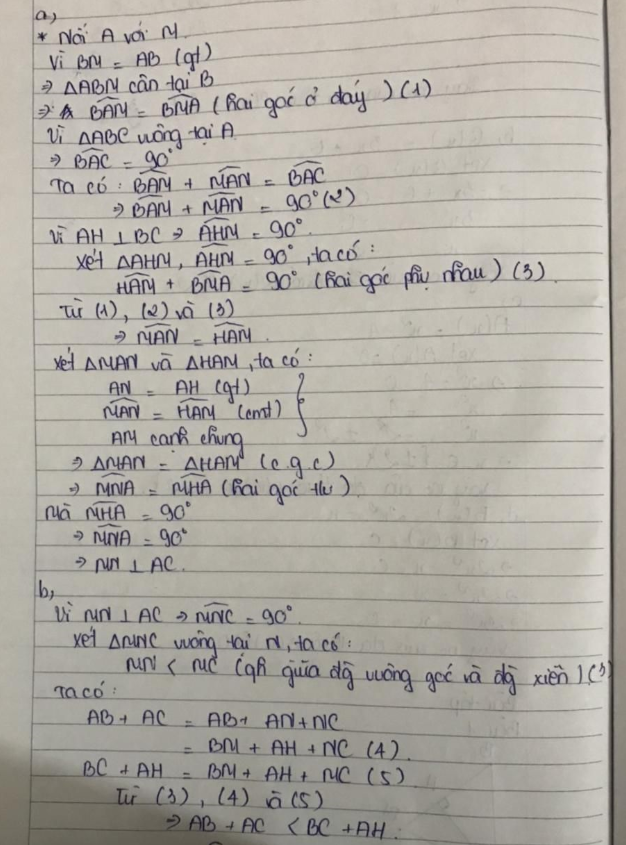 a,
* Nối A với M.
Vì BM = AB (gt)
⇒ ΔABM cân tại B
⇒ BAM̂ = BMÂ (hai góc ở đáy) (1)
Vì ΔABC vuông tại A
⇒ BAĈ = 90°
Ta có: BAM̂ + MAN̂ = BAĈ
⇒ BAM̂ + MAN̂ = 90° (2)
Vì AH ⊥ BC ⇒ AHM̂ = 90°.
xét ΔAHM, AHM̂ = 90°, ta có:
HAM̂ + BMÂ = 90° (hai góc phụ nhau) (3)
Từ (1), (2) và (3)
⇒ MAN̂ = HAM̂.
xét ΔMAN và ΔHAM, ta có:
AN = AH (gt)
MAN̂ = HAM̂ (cmt) }
AM cạnh chung
⇒ ΔMAN = ΔHAM (c.g.c)
⇒ MNÂ = MHÂ (hai góc tư)
Mà MHÂ = 90°
⇒ MNÂ = 90°
⇒ MN ⊥ AC.
b,
Vì MN ⊥ AC ⇒ MNĈ = 90°.
xét ΔMNC vuông tại N, ta có:
NN < MC (qh giữa đg vuông góc và đg xiên) (3)
Ta có:
AB + AC = AB + AN + NC
= BM + AH + NC (4).
BC + AH = BM + AH + MC (5)
Từ (3), (4) và (5)
⇒ AB + AC < BC + AH.